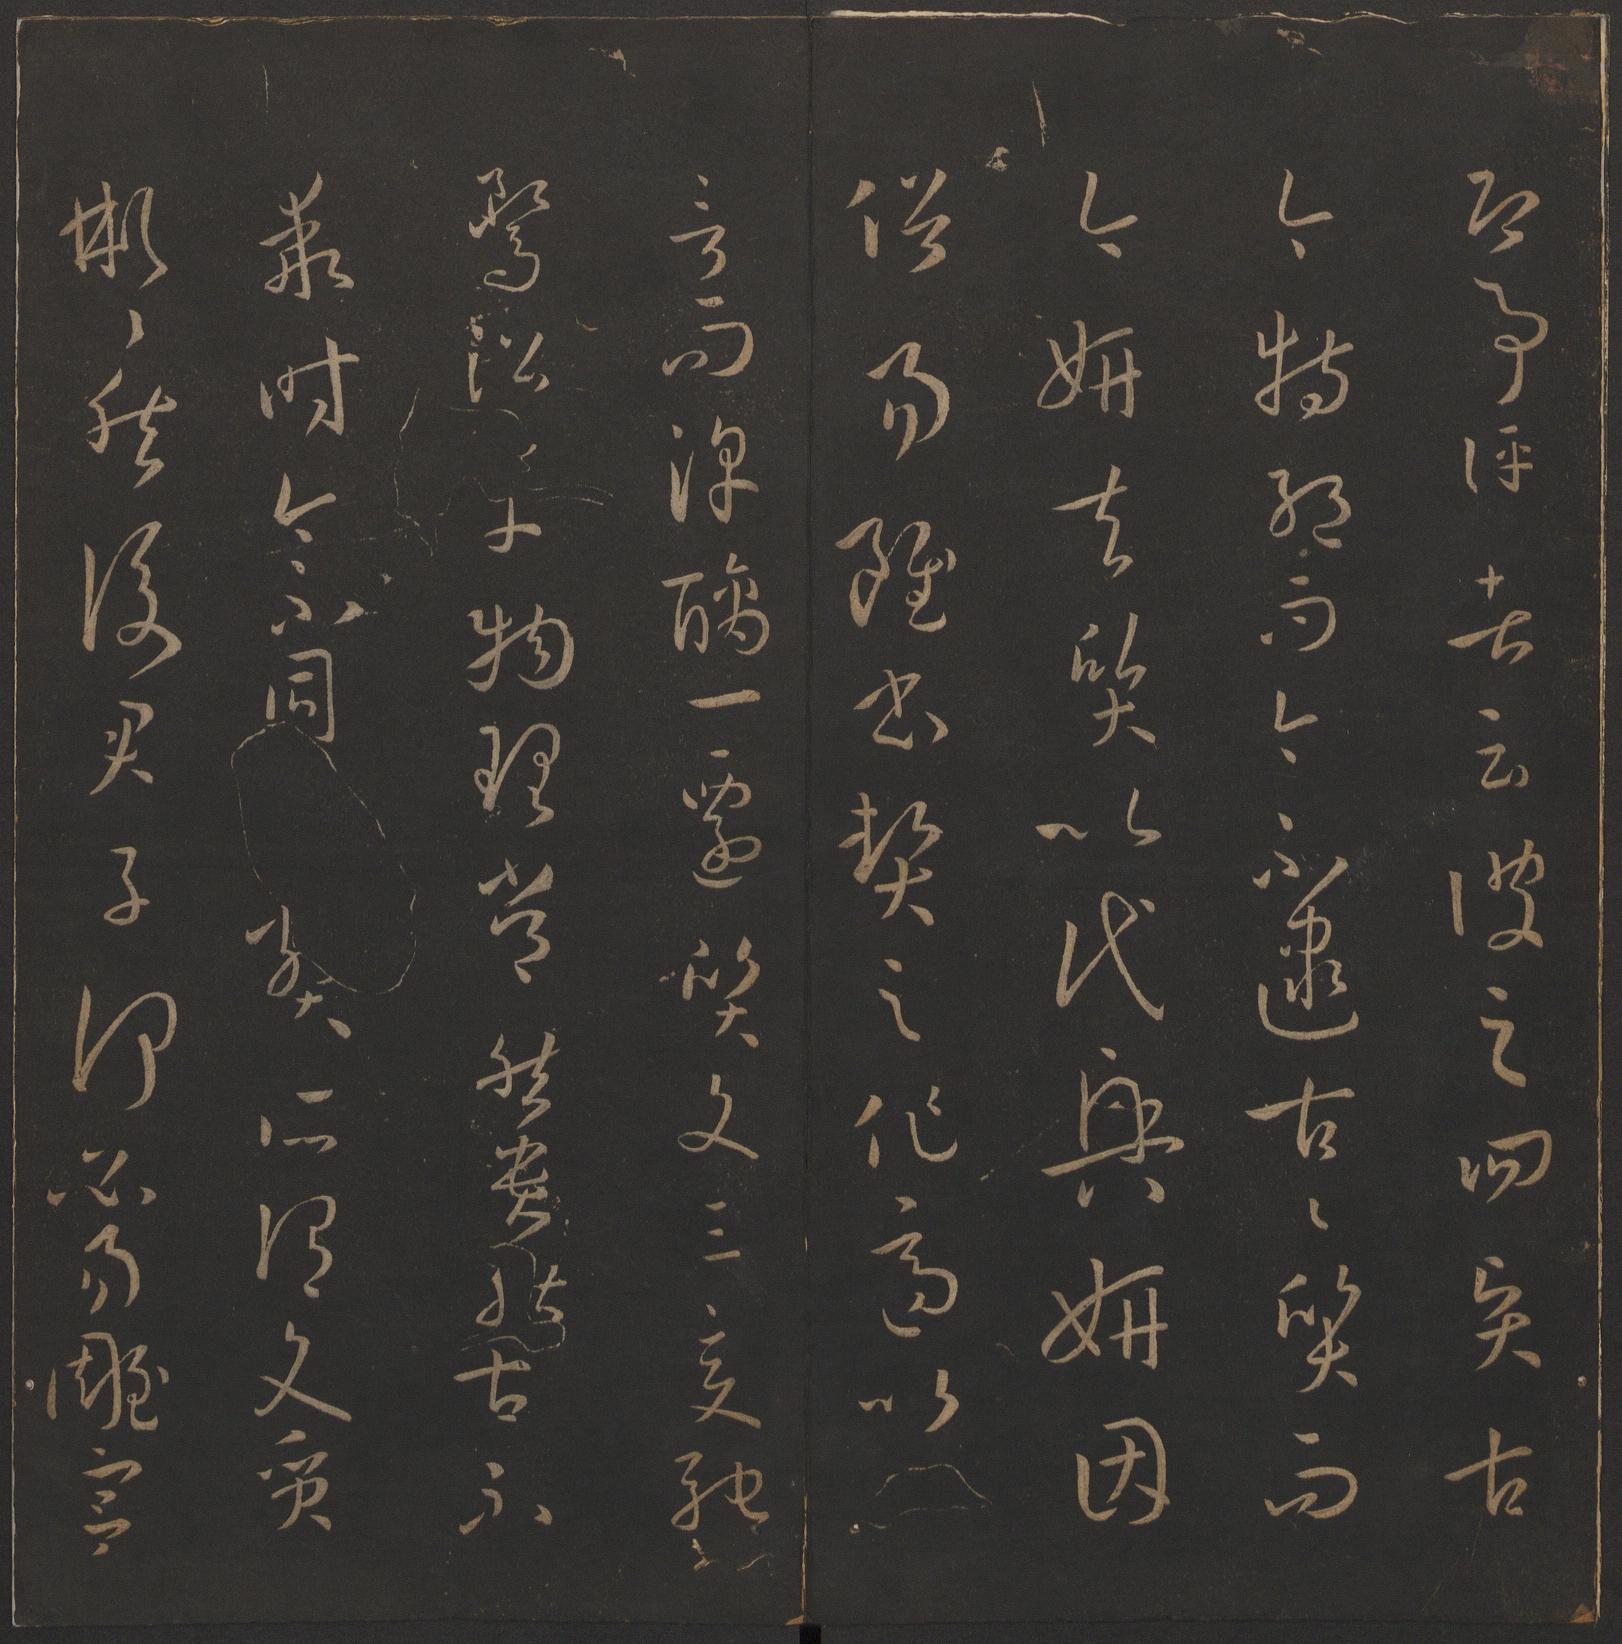 即事評者云彼之四賢古
今特絕而今不逮古〻質而
今妍夫質以代興妍因
俗易雖書契之作適以
言而淳醨一遷質文三變馳
騖沿革物理常然貴能古不
乖時今不同弊所謂文質
彬〻然後君子何必易雕宮